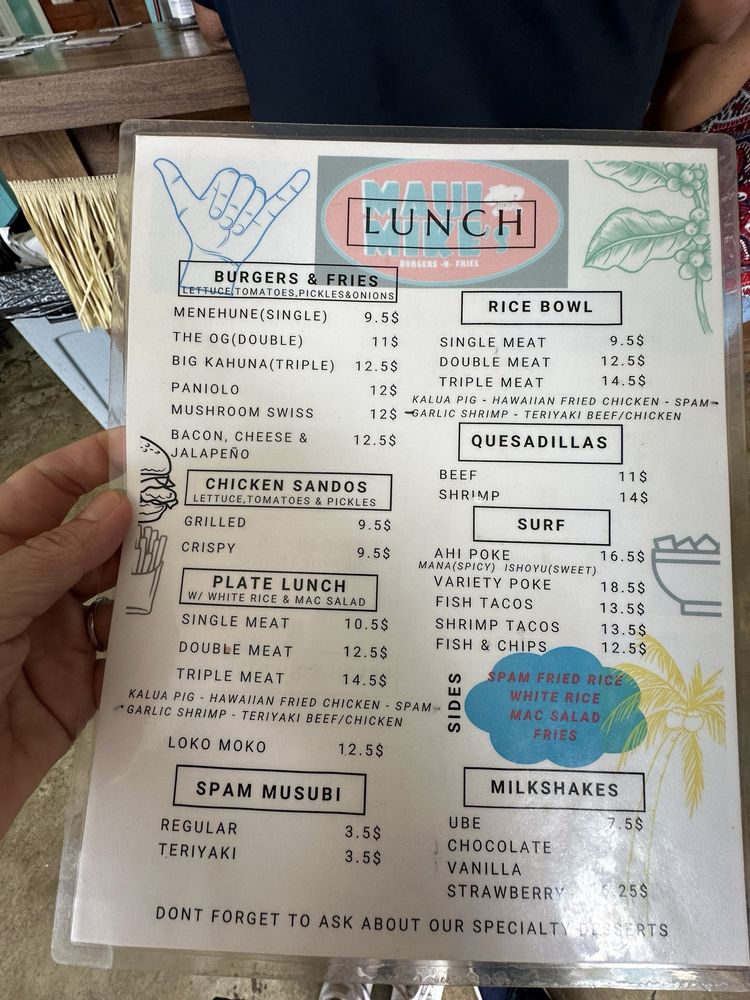 MAUI
MIKE'S
BURGERS -N- FRIES
LUNCH
BURGERS & FRIES
LETTUCE,TOMATOES,PICKLES&ONIONS
MENEHUNE(SINGLE) 9.5$
THE OG(DOUBLE) 11$
BIG KAHUNA(TRIPLE) 12.5$
PANIOLO 12$
MUSHROOM SWISS 12$
BACON, CHEESE & 12.5$
JALAPEÑO
CHICKEN SANDOS
LETTUCE,TOMATOES & PICKLES
GRILLED 9.5$
CRISPY 9.5$
PLATE LUNCH
W/ WHITE RICE & MAC SALAD
SINGLE MEAT 10.5$
DOUBLE MEAT 12.5$
TRIPLE MEAT 14.5$
KALUA PIG - HAWAIIAN FRIED CHICKEN - SPAM-
GARLIC SHRIMP - TERIYAKI BEEF/CHICKEN
LOKO MOKO 12.5$
SPAM MUSUBI
REGULAR 3.5$
TERIYAKI 3.5$
RICE BOWL
SINGLE MEAT 9.5$
DOUBLE MEAT 12.5$
TRIPLE MEAT 14.5$
KALUA PIG - HAWAIIAN FRIED CHICKEN - SPAM-
GARLIC SHRIMP - TERIYAKI BEEF/CHICKEN
QUESADILLAS
BEEF 11$
SHRIMP 14$
SURF
AHI POKE 16.5$
MANA(SPICY) ISHOYU(SWEET)
VARIETY POKE 18.5$
FISH TACOS 13.5$
SHRIMP TACOS 13.5$
FISH & CHIPS 12.5$
SIDES
SPAM FRIED RICE
WHITE RICE
MAC SALAD
FRIES
MILKSHAKES
UBE 7.5$
CHOCOLATE
VANILLA
STRAWBERRY 6.25$
DONT FORGET TO ASK ABOUT OUR SPECIALTY DESSERTS